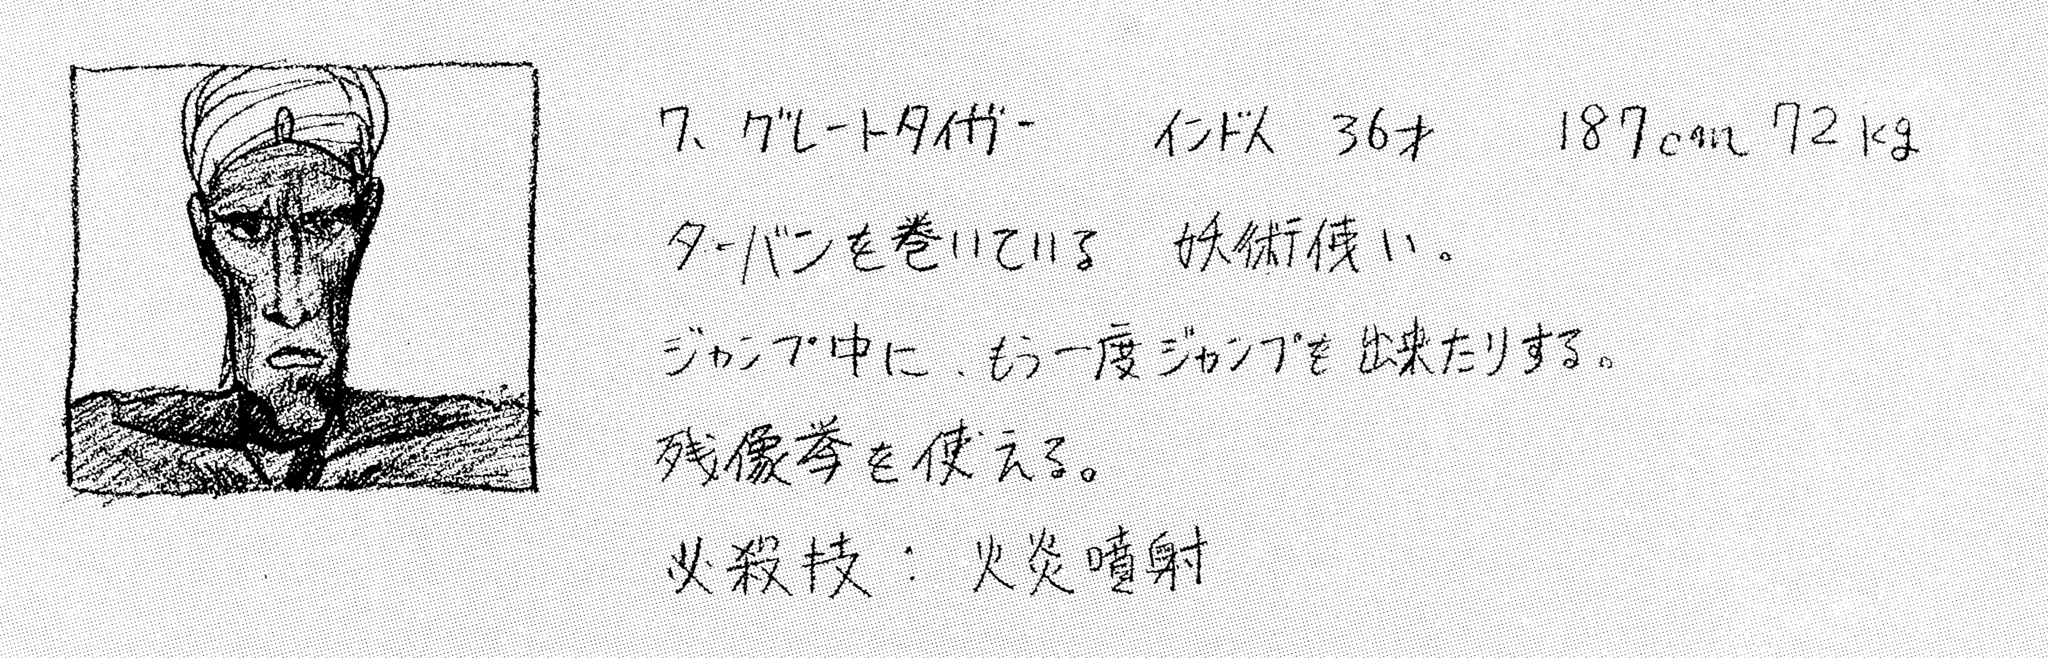 7、グレートタイガー インド人 36才 187cm 72kg
ターバンを巻いている 妖術使い。
ジャンプ中に、もう一度ジャンプを出来たりする。
残像拳を使える。
必殺技：火炎噴射